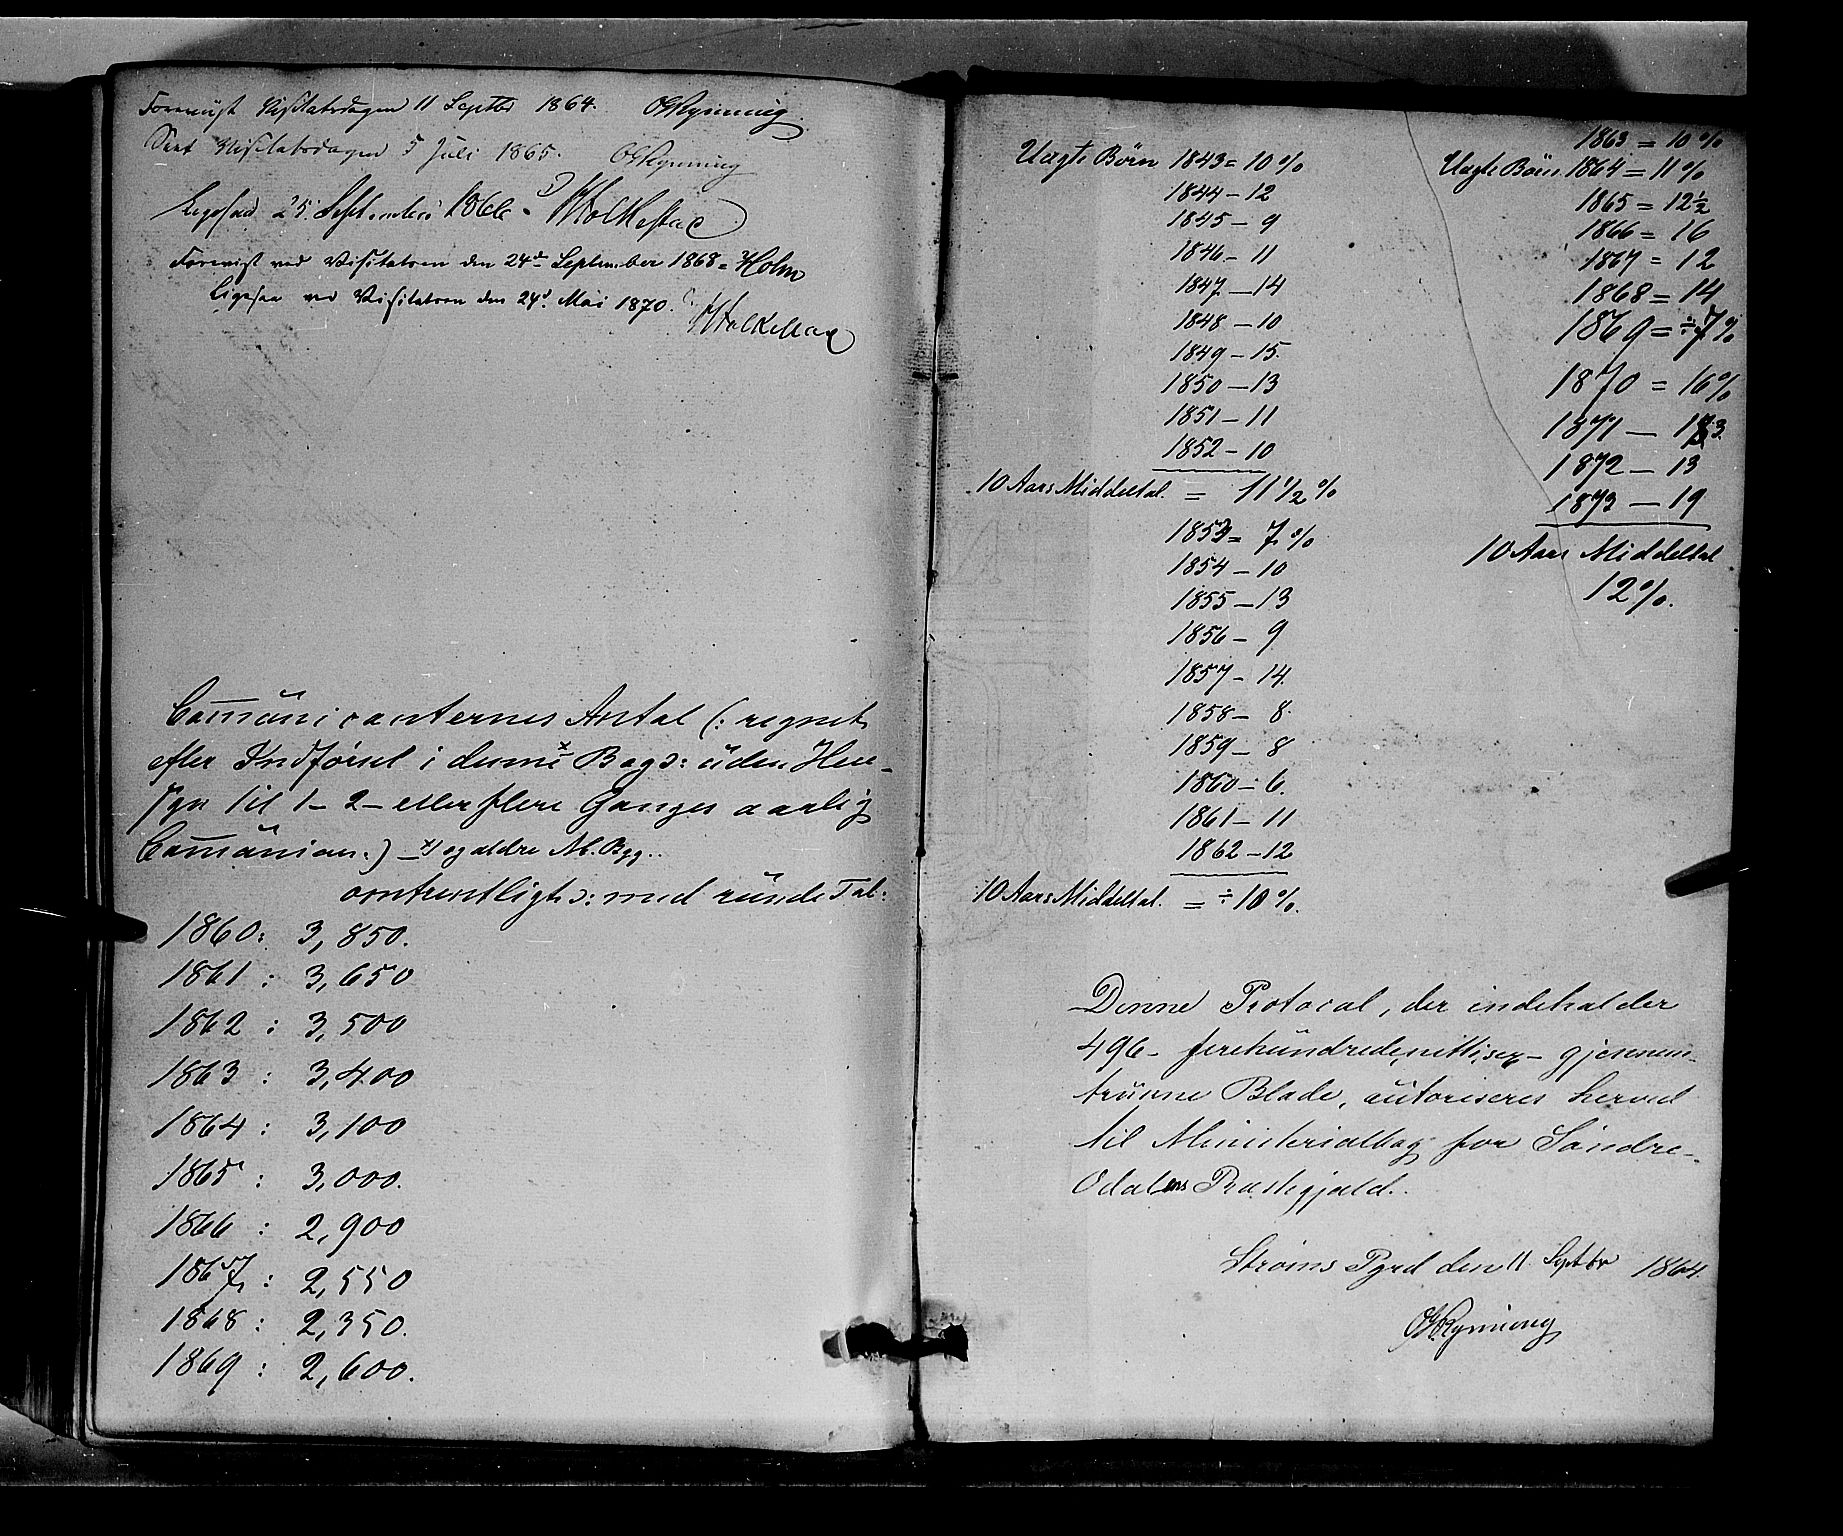 Foreviist Visitatsdagen 11 Septbr 1864. ORynning
Seet Visitatsdagen 5 Juli 1865. ORynning
Ligesaa 25 September 1866. Folkestad
Forevist ved Visitatsen den 24de September 1868 = Holm
Ligesaa ved Visitatsen den 24d. Mai 1870. Folkestad
Com̄ūnicanternes Antal (: regnet
efter Indførsel i denne x Bog ɔ: ūden Hen-
syn til 1- 2- eller flere Ganges aarlig
Com̄ūnion.) - x) og ældre M. Bgg..
omtrentligt ɔ: med rūnde Tal:
1860: 3,850.
1861 : 3,650
1862 : 3,500
1863 : 3,400
1864 : 3,100
1865 : 3,000.
1866 : 2,900
1867 : 2,550
1868 : 2,350.
1869 : 2,600.
Uægte Børn 1843 = 10 %
1844 - 12
1845 - 9
1846 - 11
1847 - 14
1848 - 10
1849 - 15.
1850 - 13
1851 - 11
1852 - 10
10 Aars Middeltal. = 11 1/2 %
1853 = 7 %
1854 - 10
1855 - 13
1856 - 9
1857 - 14
1858 - 8
1859 - 8
1860 - 6.
1861 - 11
1862 - 12
10 Aars Middeltal. = ÷ 10 %.
1863 = 10 %
Uægte Børn 1864 = 11 %
1865 = 12 1/2
1866 = 16
1867 = 12
1868 = 14
1869 = ÷ 7 %
1870 = 16 %
1871 - 13
1872 - 13
1873 - 19
10 Aars Middeltal
12 %.
Denne Protocol, der indeholder
496 - firehūndredenittisex - gjennem-
trūkne Blade, aūtoriseres herved
til Ministerialbog for Søndre-
Odalens Præstegjæld.
Strøms Pgrd den 11 Septbr 1864.
ORynning